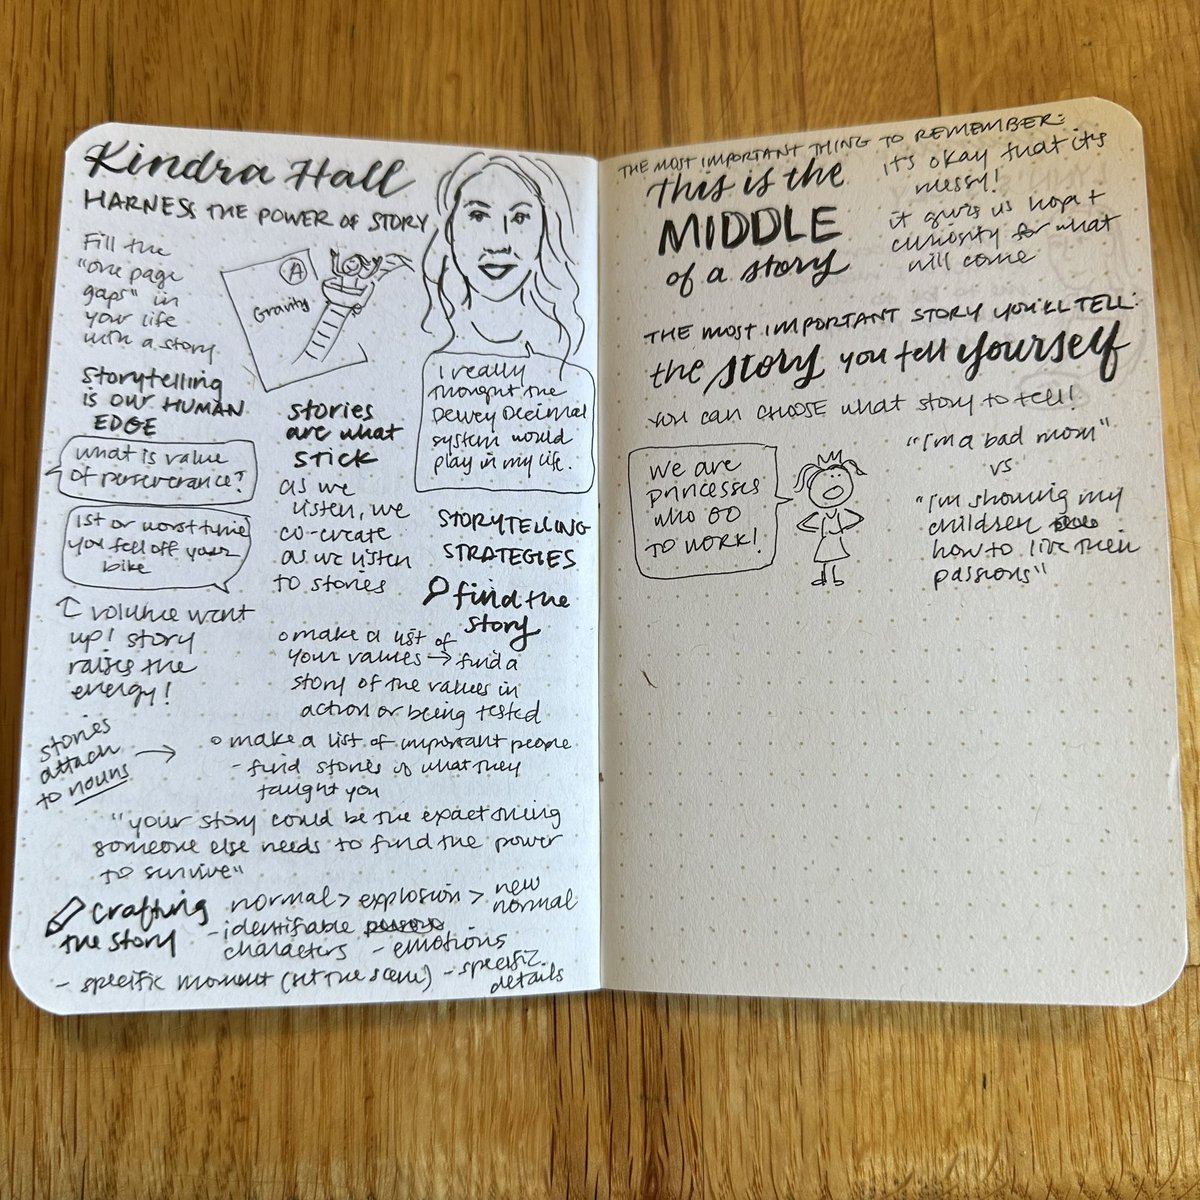 Kindra Hall
HARNESS THE POWER OF STORY
Fill the
"one page
gaps" in
your life
with a story
A
Gravity
storytelling
is our HUMAN
EDGE
what is value
of perseverance?
1st or worst time
you fell off your
bike
↑ volume went
up! story
raises the
energy!
stories
are what
STICK
as we
listen, we
co-create
as we listen
to stories
I really
thought the
Dewey Decimal
system would
play in my life.
STORYTELLING
STRATEGIES
find the
story
o make a list of
your values → find a
story of the values in
action or being tested
stories
attach →
to nouns
o make a list of important people
- find stories of what they
taught you
"your story could be the exact thing
someone else needs to find the power
to survive"
crafting
the story
normal > explosion > new
normal
- identifiable
characters - emotions
- specific moment (set the scene) - specific
details
THE MOST IMPORTANT THING TO REMEMBER:
this is the
MIDDLE
of a story
it's okay that it's
messy!
it gives us hope +
curiosity for what
will come
THE MOST IMPORTANT STORY YOU'LL TELL:
the story you tell yourself
you can CHOOSE what story to tell!
we are
princesses
who GO
TO WORK!
"I'm a bad mom"
vs
"I'm showing my
children
how to live their
passions"